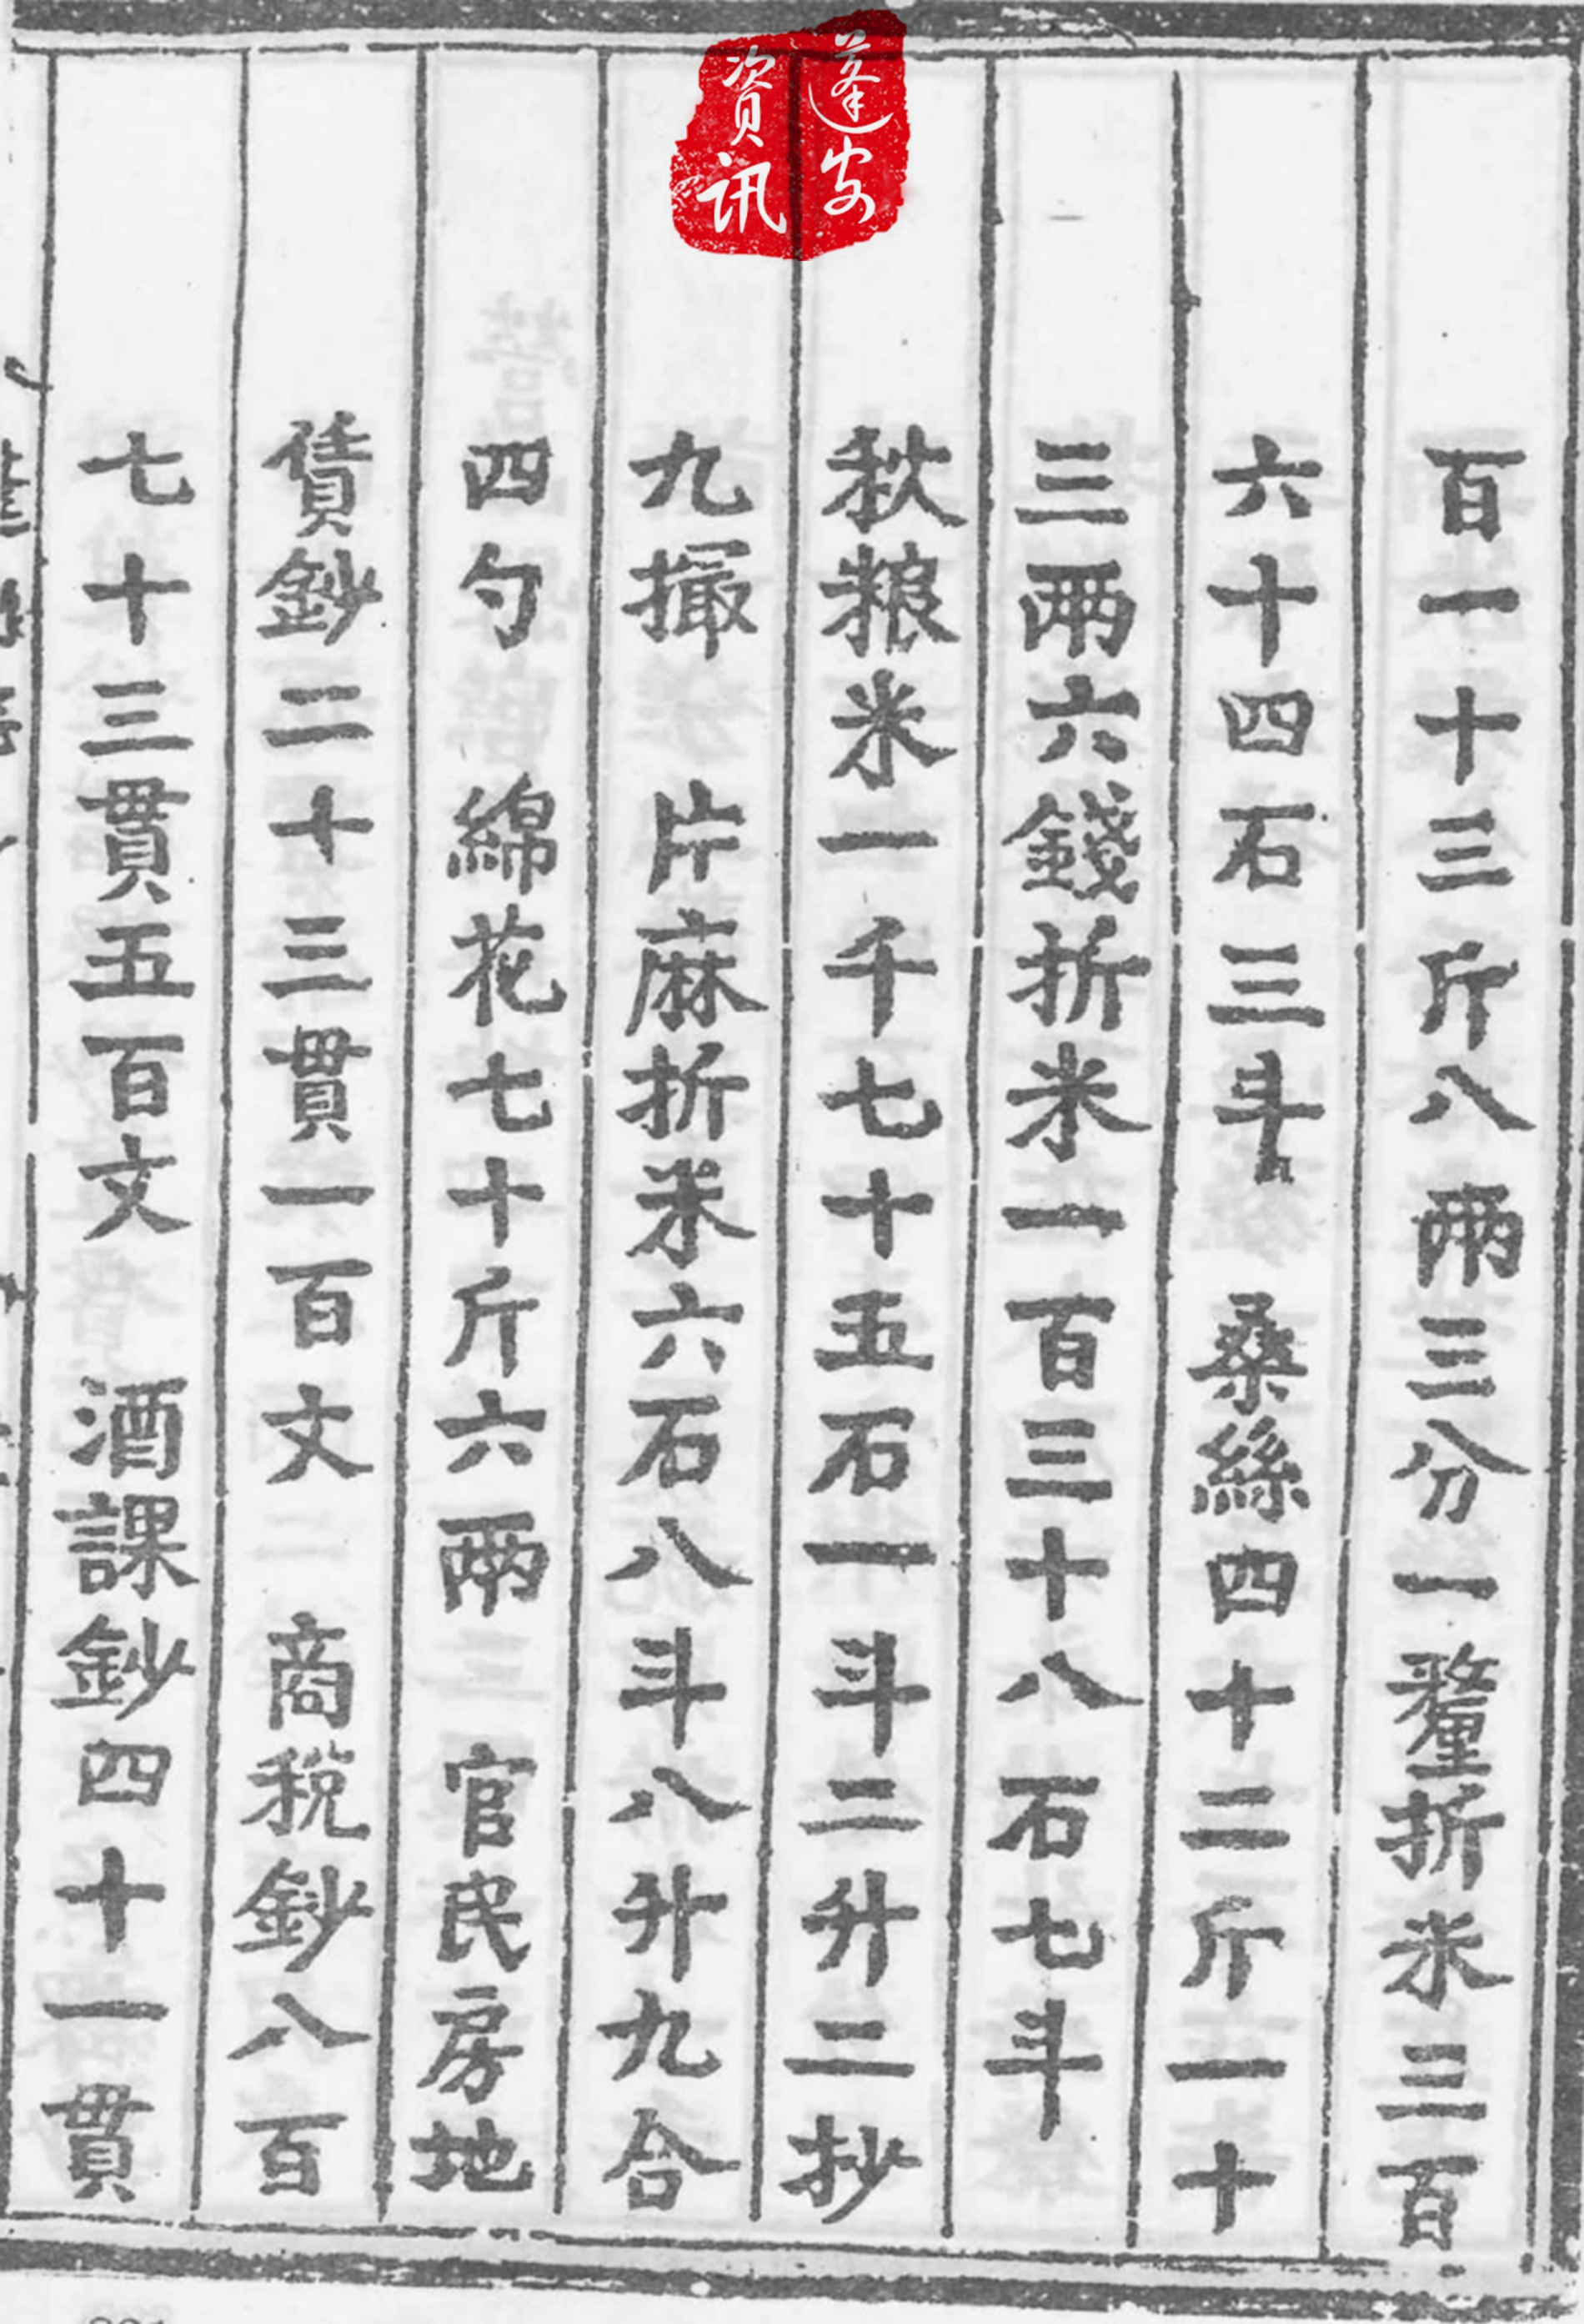 蓬安
資訊
百一十三斤八兩三分一釐折米三百
六十四石三斗　桑絲四十二斤一十
三兩六錢折米一百三十八石七斗
秋粮米一千七十五石一斗二升二抄
九撮　片麻折米六石八斗八升九合
四勺　綿花七十斤六兩　官民房地
賃鈔二十三貫一百文　商稅鈔八百
七十三貫五百文　酒課鈔四十一貫